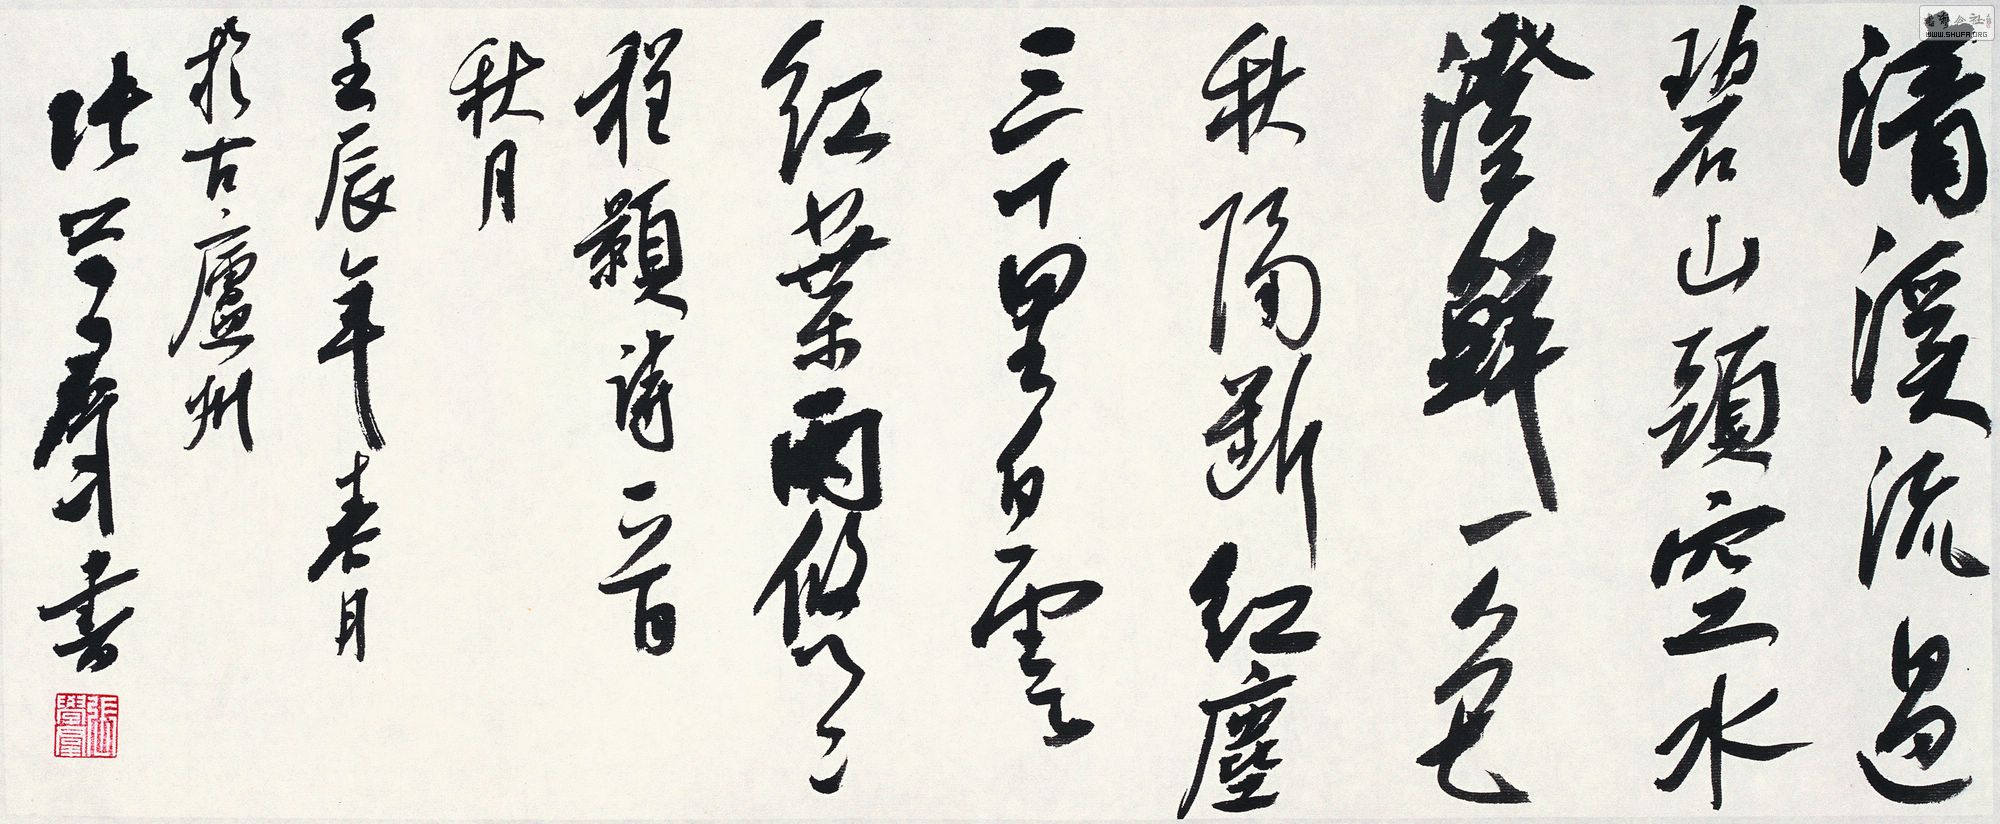 清溪流過
碧山頭空水
澄鮮一色
秋隔斷紅塵
三十里白雲
紅葉兩悠々
程顥詩一首
秋月
壬辰年春月
於古廬州
張學群書
張學群
WWW.SHUFA.ORG